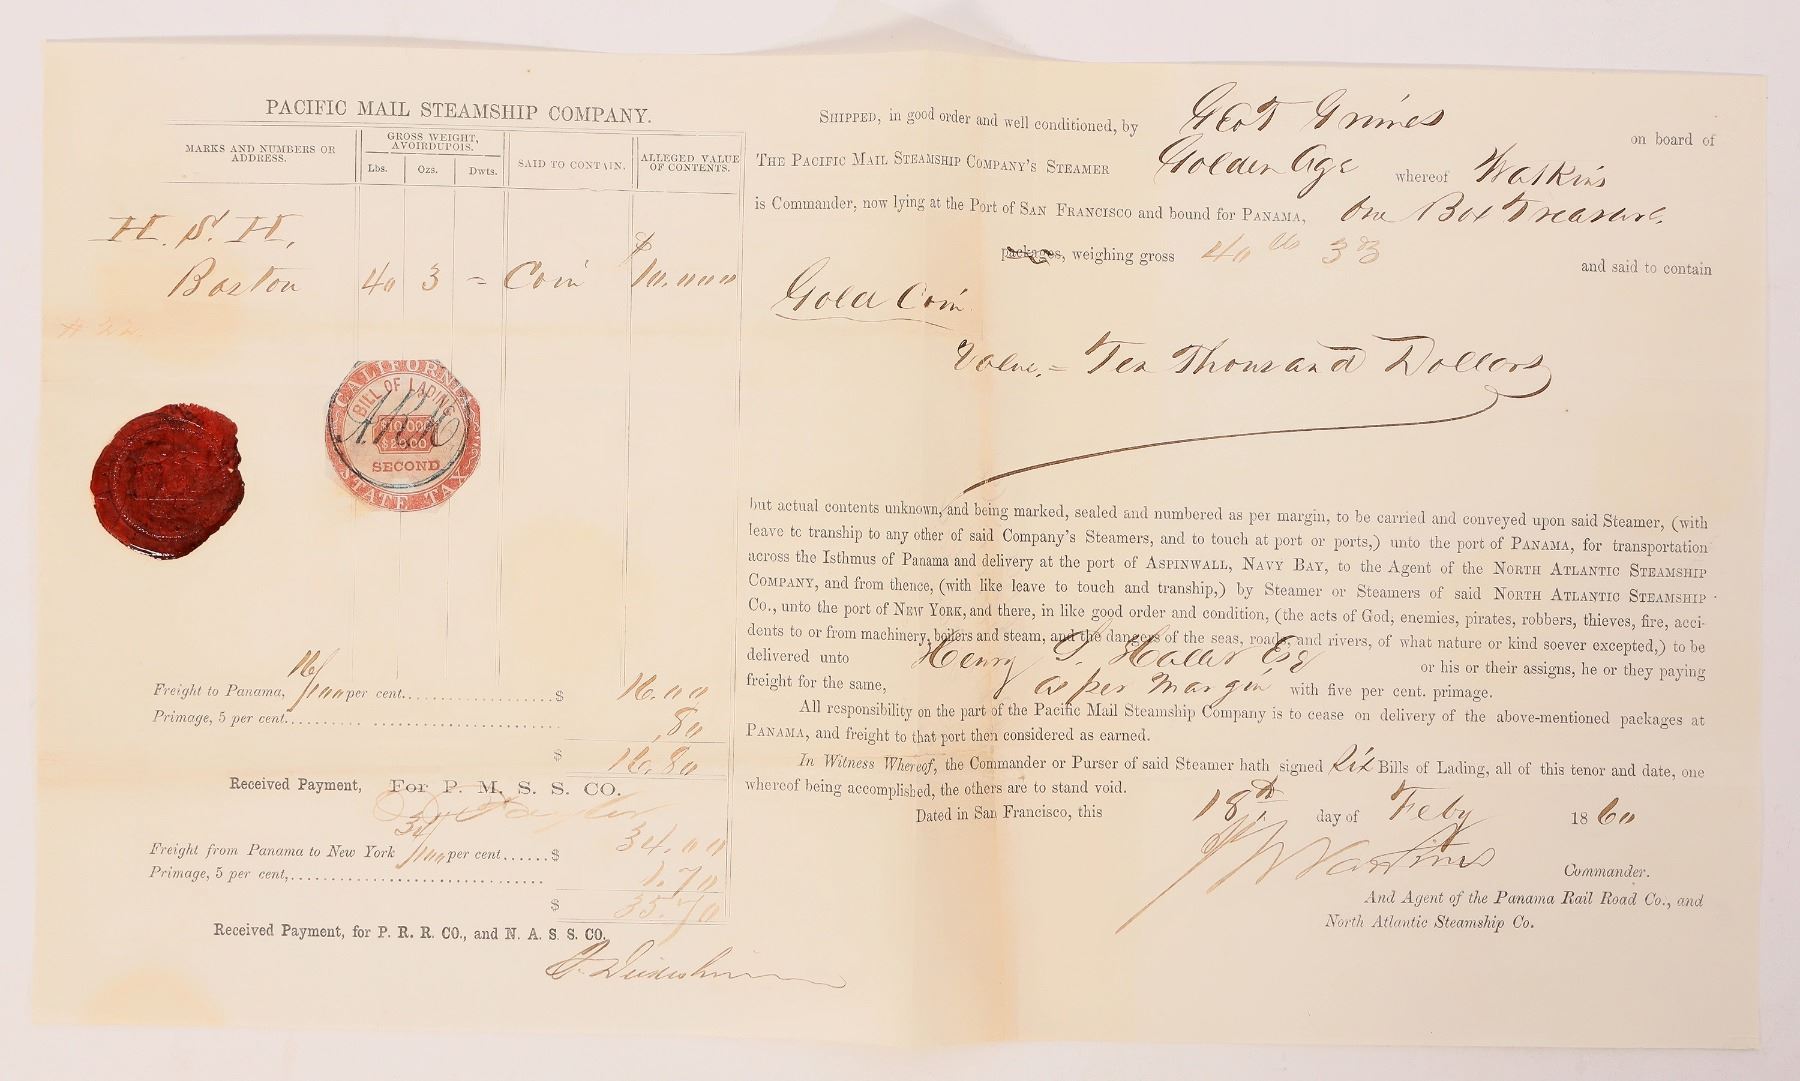 PACIFIC MAIL STEAMSHIP COMPANY.
MARKS AND NUMBERS OR ADDRESS.
GROSS WEIGHT, AVOIRDUPOIS.
Lbs. Ozs. Dwts.
SAID TO CONTAIN.
ALLEGED VALUE OF CONTENTS.
H. S. H,
$
Boston 40 3 = Coin 10.000
# 22.
CALIFORNIA
BILL OF LADING
$10,000
SECOND
STATE TAX
16/100
Freight to Panama, per cent. $ 16.00
Primage, 5 per cent. .80
$ 16.80
Received Payment, For P. M. S. S. CO.
34/100
Freight from Panama to New York per cent. $ 34.00
Primage, 5 per cent, 1.70
$ 35.70
Received Payment, for P. R. R. CO., and N. A. S. S. CO.
SHIPPED, in good order and well conditioned, by Geo T Grimes on board of
THE PACIFIC MAIL STEAMSHIP COMPANY'S STEAMER Golden Age whereof Watkins
is Commander, now lying at the Port of SAN FRANCISCO and bound for PANAMA, One Box Treasure.
packages, weighing gross 40 lb 3 oz and said to contain
Gold Coin
Value, = Ten Thousand Dollars
but actual contents unknown, and being marked, sealed and numbered as per margin, to be carried and conveyed upon said Steamer, (with
leave to tranship to any other of said Company's Steamers, and to touch at port or ports,) unto the port of PANAMA, for transportation
across the Isthmus of Panama and delivery at the port of ASPINWALL, NAVY BAY, to the Agent of the NORTH ATLANTIC STEAMSHIP
COMPANY, and from thence, (with like leave to touch and tranship,) by Steamer or Steamers of said NORTH ATLANTIC STEAMSHIP
CO., unto the port of NEW YORK, and there, in like good order and condition, (the acts of God, enemies, pirates, robbers, thieves, fire, acci-
dents to or from machinery, boilers and steam, and the dangers of the seas, roads, and rivers, of what nature or kind soever excepted,) to be
delivered unto Henry S. Esq or his or their assigns, he or they paying
freight for the same, as per Margin with five per cent. primage.
All responsibility on the part of the Pacific Mail Steamship Company is to cease on delivery of the above-mentioned packages at
PANAMA, and freight to that port then considered as earned.
In Witness Whereof, the Commander or Purser of said Steamer hath signed Six Bills of Lading, all of this tenor and date, one
whereof being accomplished, the others are to stand void.
Dated in San Francisco, this 18th day of Feby 1860
Watkins
Commander.
And Agent of the Panama Rail Road Co., and
North Atlantic Steamship Co.